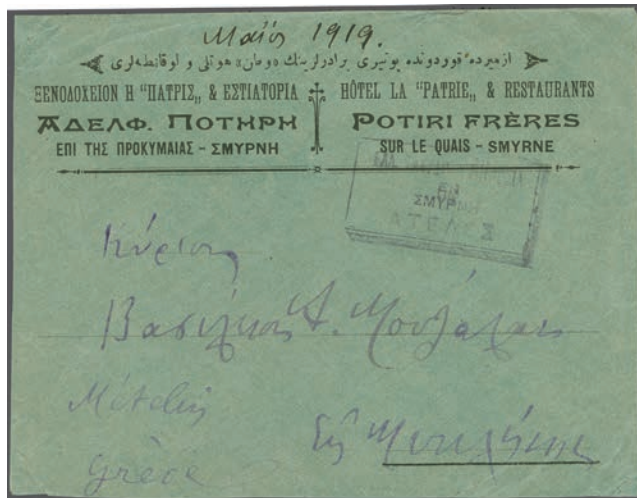 Μαΐος 1919.
ازميرده قوردونده پوتيرى برادرلرينك «وطن» هوتلى و لوقانطه‌لرى
ΞΕΝΟΔΟΧΕΙΟΝ Η "ΠΑΤΡΙΣ„ & ΕΣΤΙΑΤΟΡΙΑ
ΑΔΕΛΦ. ΠΟΤΗΡΗ
ΕΠΙ ΤΗΣ ΠΡΟΚΥΜΑΙΑΣ - ΣΜΥΡΝΗ
HÔTEL LA "PATRIE„ & RESTAURANTS
POTIRI FRÈRES
SUR LE QUAIS - SMYRNE
ΕΝ
ΣΜΥΡΝΗ
ΑΤΕΛΕΣ
Κύριον
Βασίλειον
Μέτελιν
Grèce
Εἰς Μυτιλήνην